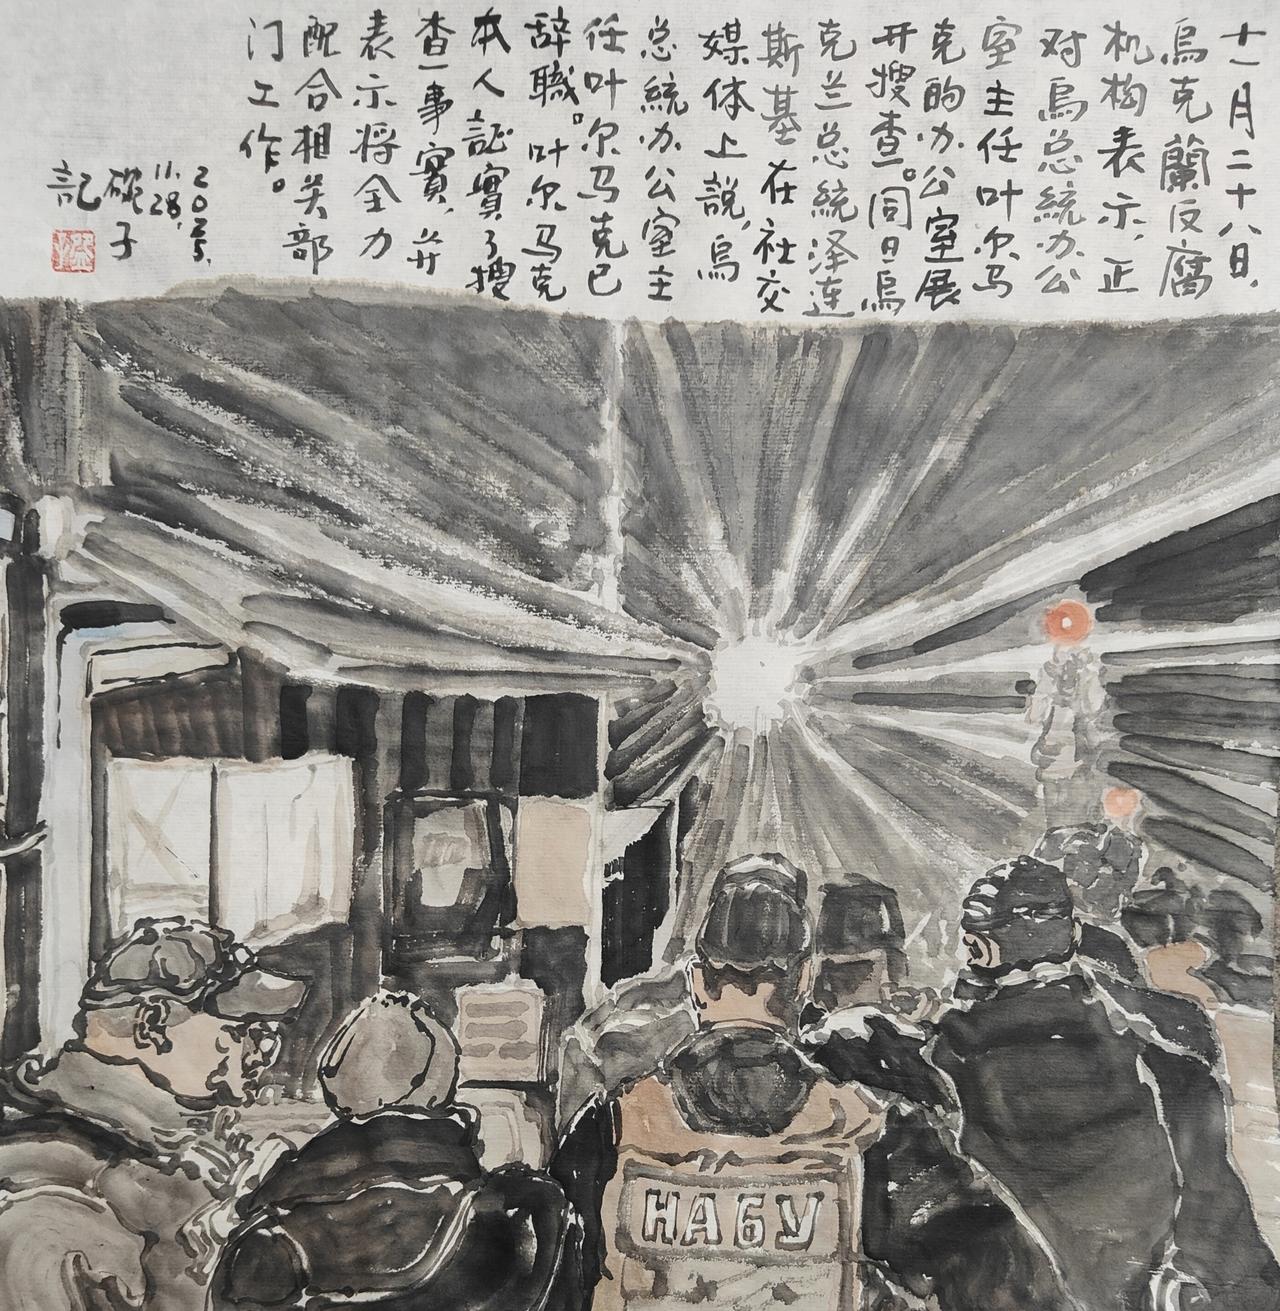 十一月二十八日，
烏克蘭反腐
机构表示，正
对烏总統办公
室主任叶尔马
克的办公室展
开搜查。同日烏
克兰总統泽连
斯基在社交
媒体上說，烏
总統办公室主
任叶尔马克已
辞職。叶尔马克
本人証實了搜
查一事實，并
表示将全力
配合相关部
门工作。
2025.
11.28,
砚子
記
НАБУ